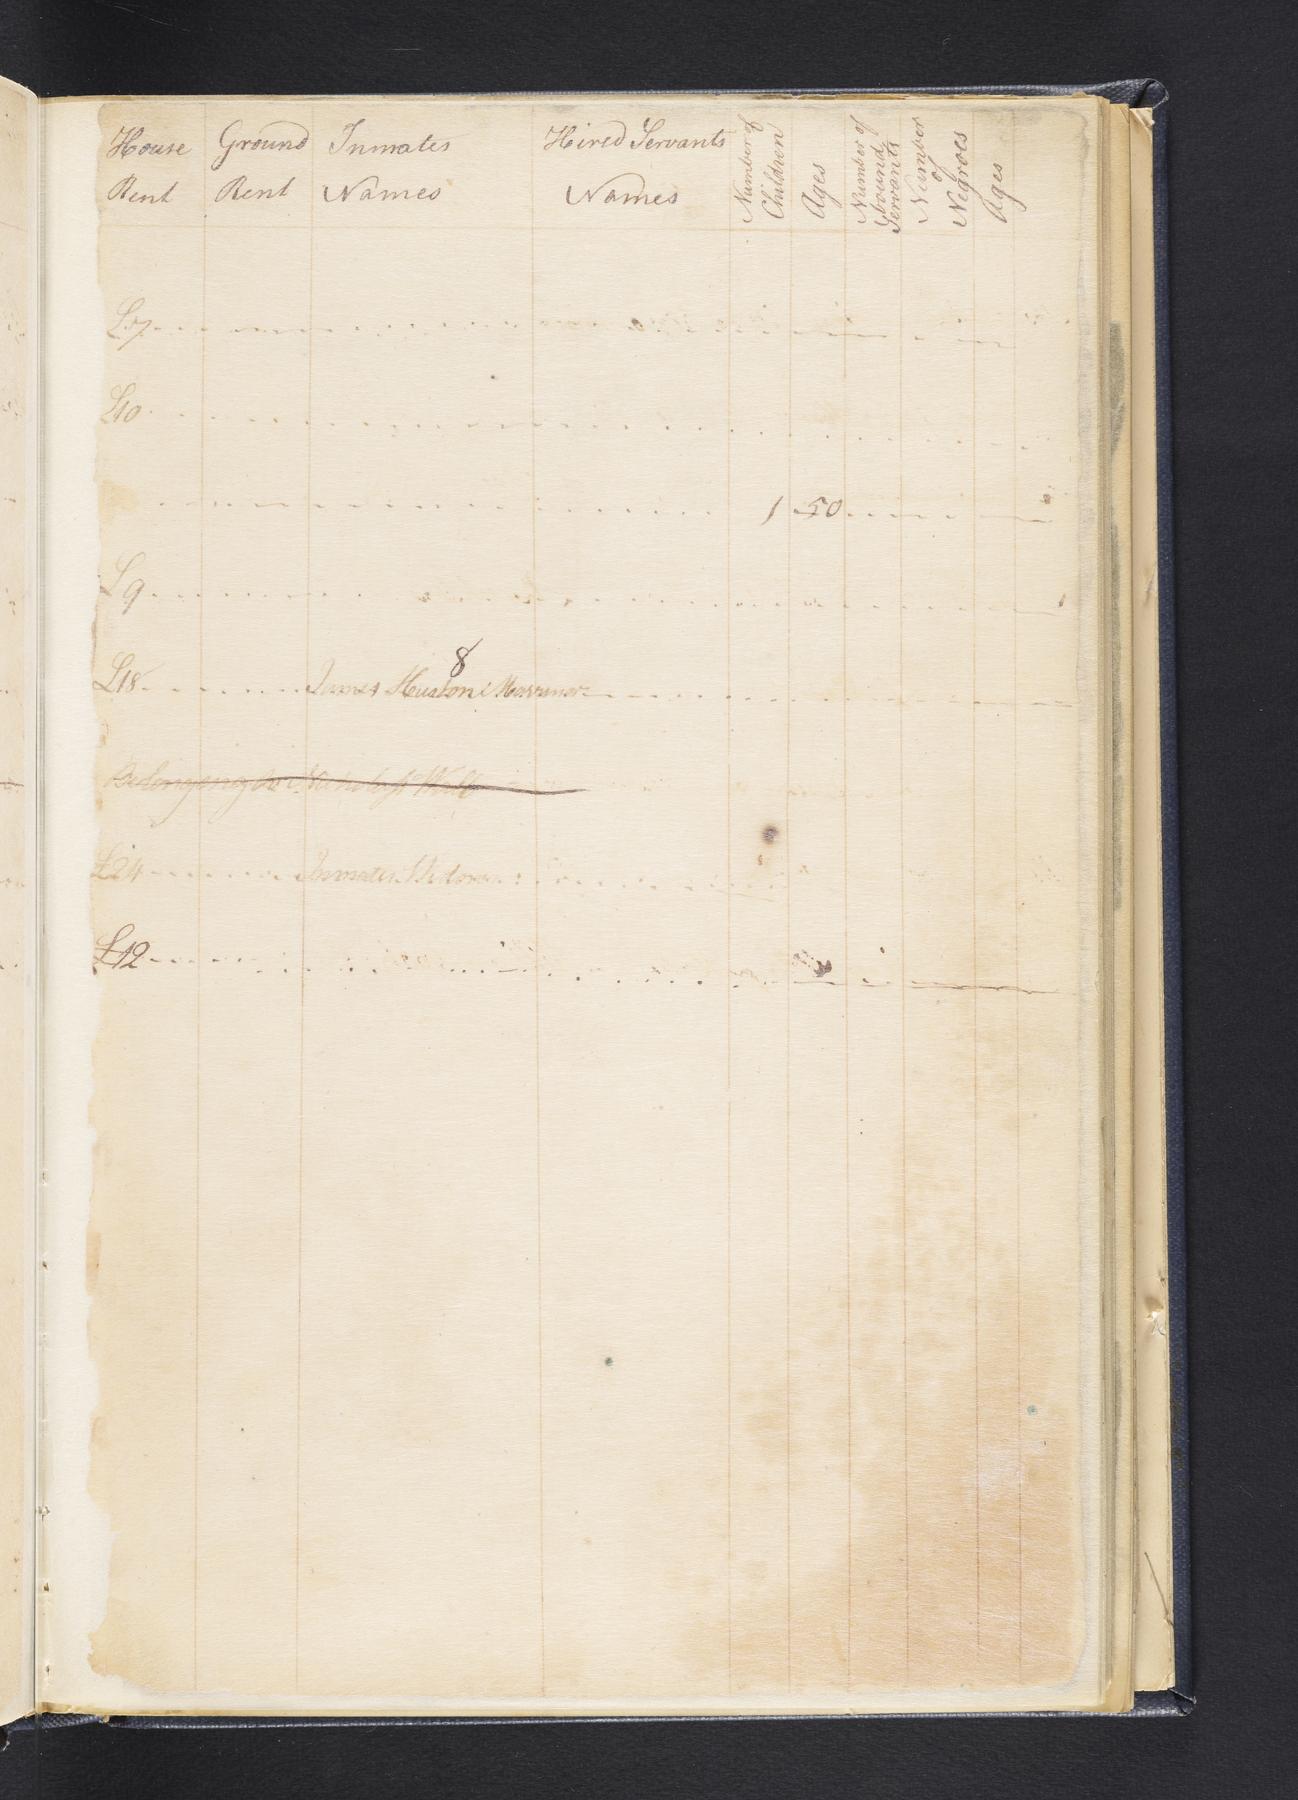 House Rent
Ground Rent
Inmates Names
Hired Servants Names
Number of Children
Ages
Number of bound Servants
Number of Negroes
Ages
£17
£10
1 50
£9
8
£18 James Huston
Belonging to Wall
£24 Inmates
£12